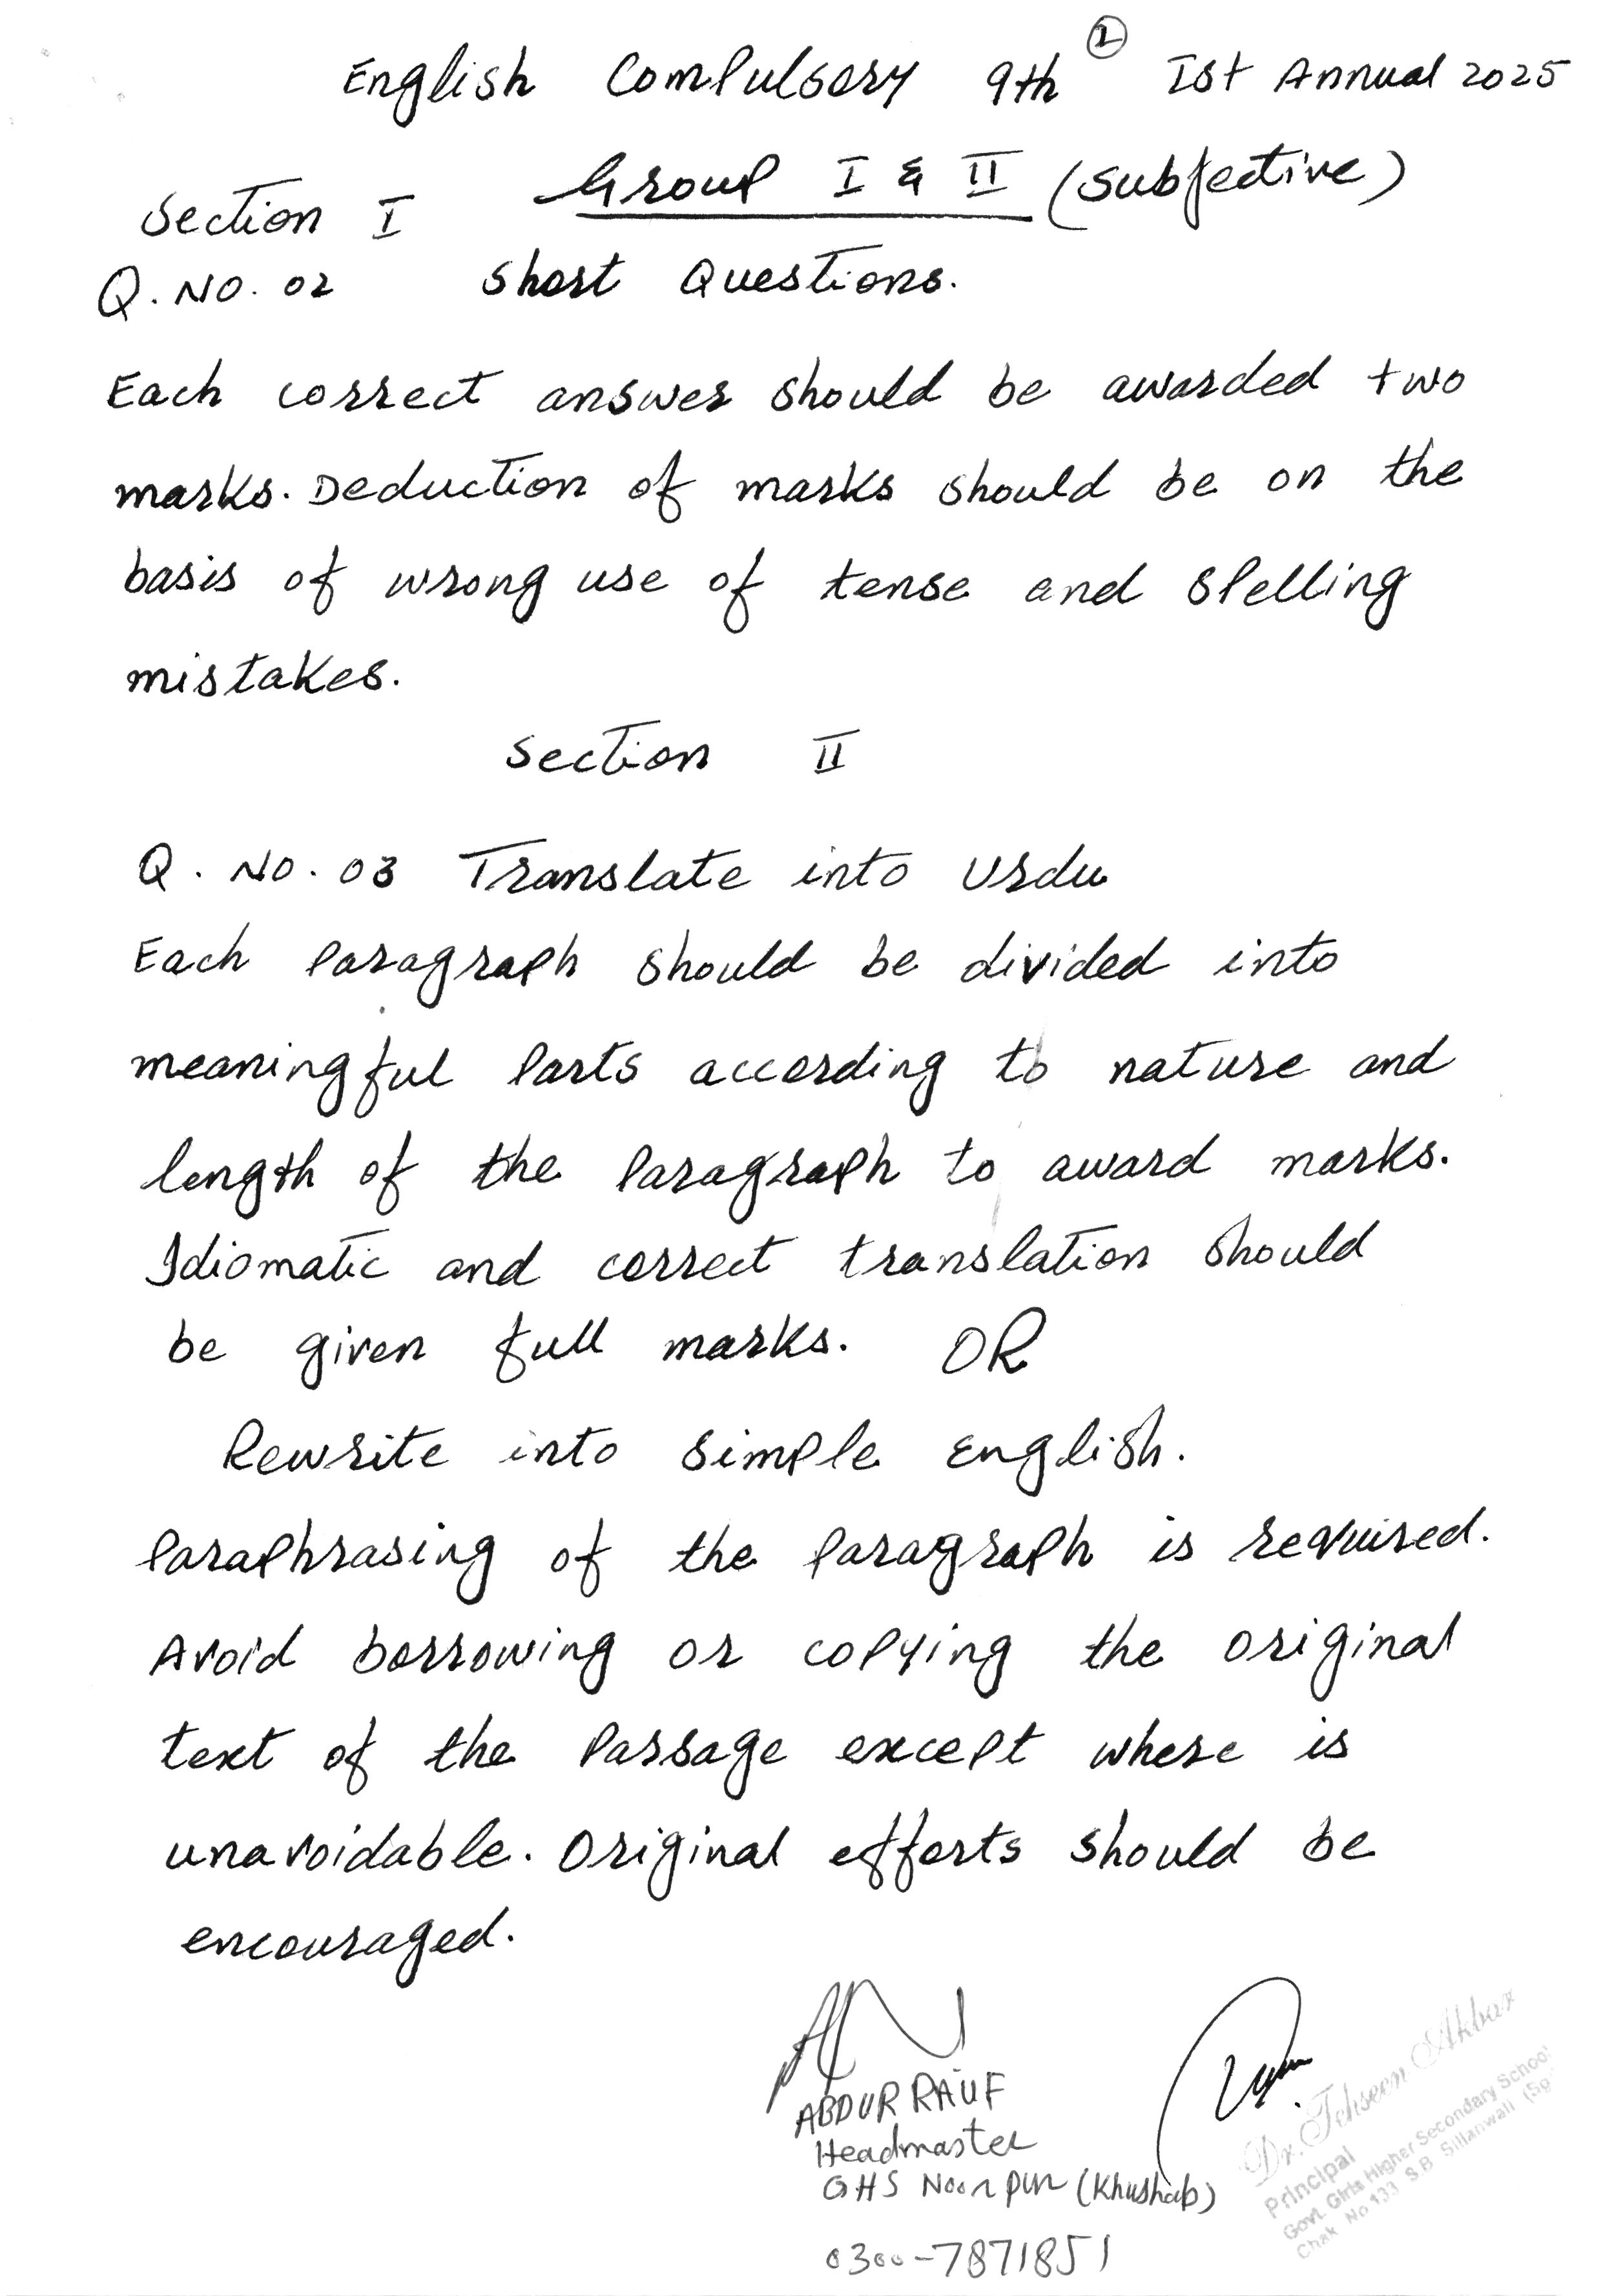 ①
English Compulsory 9th Ist Annual 2025
Group I & II (Subjective)
Section I
Q. NO. 02 Short Questions.
Each correct answer should be awarded two
marks. Deduction of marks should be on the
basis of wrong use of tense and spelling
mistakes.
Section II
Q. NO. 03 Translate into Urdu
Each paragraph should be divided into
meaningful parts according to nature and
length of the paragraph to award marks.
Idiomatic and correct translation should
be given full marks. OR
Rewrite into simple English.
Paraphrasing of the paragraph is required.
Avoid borrowing or copying the original
text of the passage except where is
unavoidable. Original efforts should be
encouraged.
ABDUR RAUF
Headmaster
GHS Noorpur (Khushab)
0300-7871851
Dr. Tehseen Akbar
Principal
Govt. Girls Higher Secondary School
Chak No 133 S.B Sillanwali (Sg